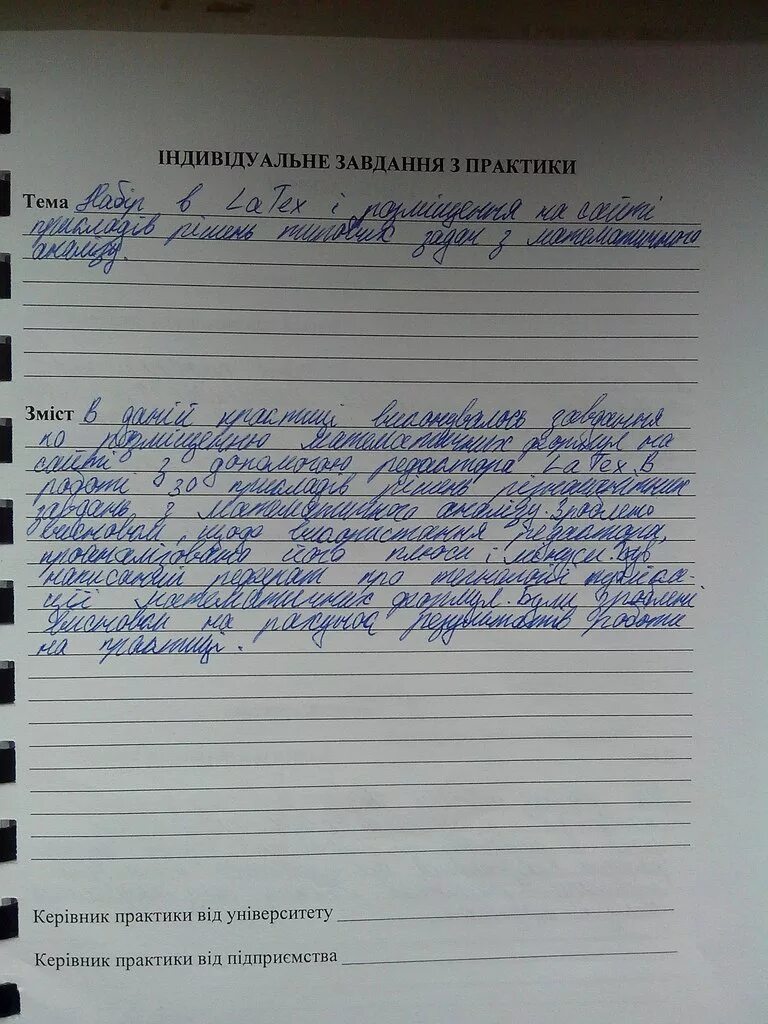 ІНДИВІДУАЛЬНЕ ЗАВДАННЯ З ПРАКТИКИ
Тема Набір в LaTex і розміщення на сайті
прикладів рішень типових задач з математичного
аналізу.
Зміст В даній практиці виконувалось завдання
по розміщенню математичних формул на
сайті з допомогою редактора LaTex. В
роботі 30 прикладів рішень різноманітних
завдань з математичного аналізу. Зроблено
висновки, щодо використання редактора,
проаналізовано його плюси і мінуси. Був
написаний реферат про технології
ції математичних формул. Були зроблені
висновки на рахунок результатів роботи
на практиці.
Керівник практики від університету
Керівник практики від підприємства